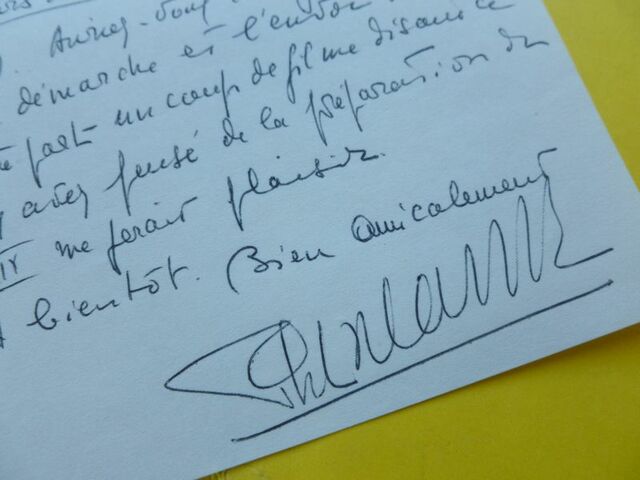 Auriez-vous
démarche et l'endroit
part un coup de fil me disant ce
avez pensé de la préparation du
me ferait plaisir.
A bientôt. Bien amicalement